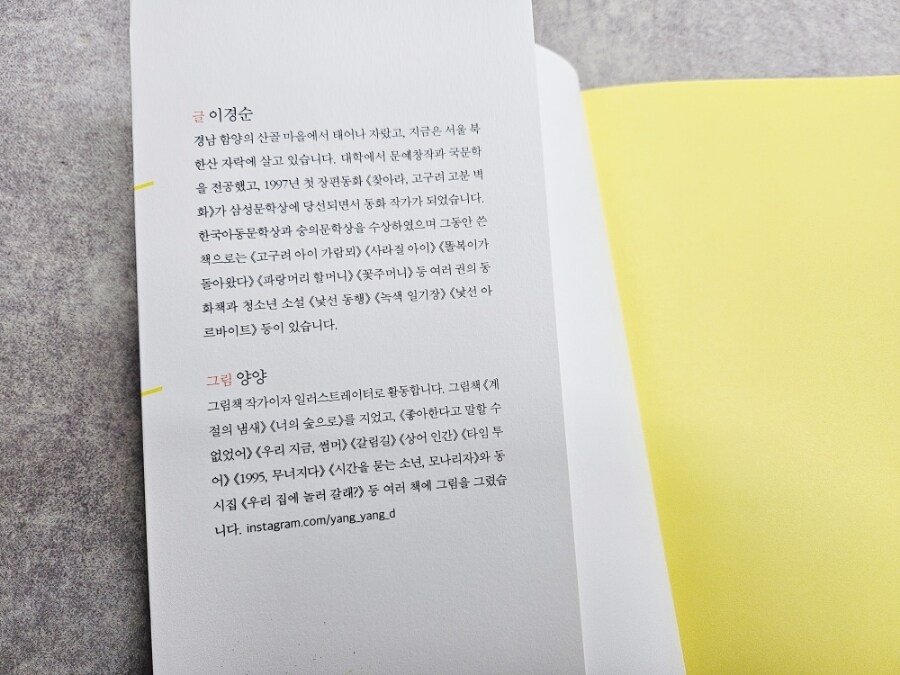 글 이경순
경남 함양의 산골 마을에서 태어나 자랐고, 지금은 서울 북
한산 자락에 살고 있습니다. 대학에서 문예창작과 국문학
을 전공했고, 1997년 첫 장편동화 《찾아라, 고구려 고분 벽
화》가 삼성문학상에 당선되면서 동화 작가가 되었습니다.
한국아동문학상과 숭의문학상을 수상하였으며 그동안 쓴
책으로는 《고구려 아이 가람뫼》 《사라질 아이》 《똘복이가
돌아왔다》 《파랑머리 할머니》 《꽃주머니》 등 여러 권의 동
화책과 청소년 소설 《낯선 동행》 《녹색 일기장》 《낯선 아
르바이트》 등이 있습니다.
그림 양양
그림책 작가이자 일러스트레이터로 활동합니다. 그림책 《계
절의 냄새》 《너의 숲으로》를 지었고, 《좋아한다고 말할 수
없었어》 《우리 지금, 썸머》 《갈림길》 《상어 인간》 《타임 투
어》 《1995, 무너지다》 《시간을 묻는 소년, 모나리자》와 동
시집 《우리 집에 놀러 갈래?》 등 여러 책에 그림을 그렸습
니다. instagram.com/yang_yang_d